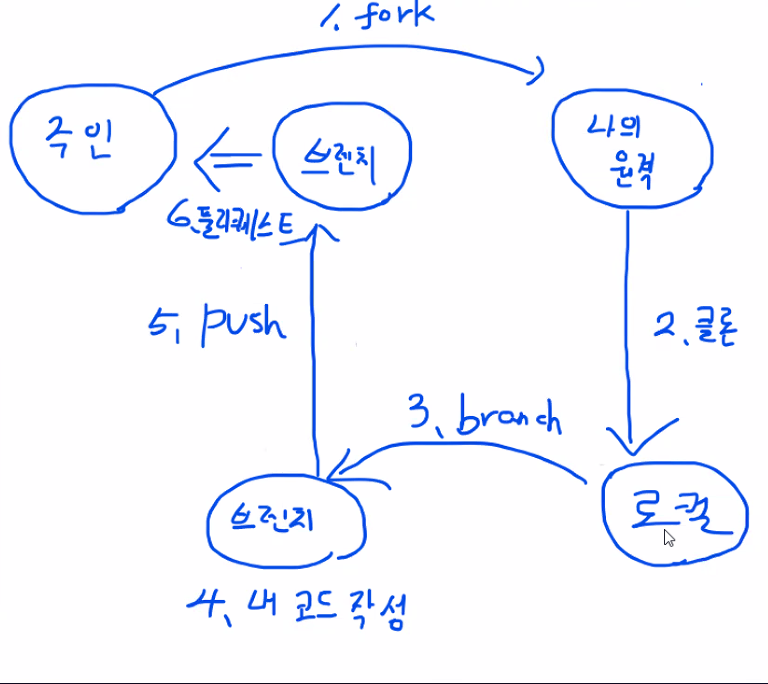 1. fork
주인
브렌치
나의
원격
6.풀리퀘스트
5, push
2.클론
3. branch
브렌치
로컬
4. 내 코드 작성